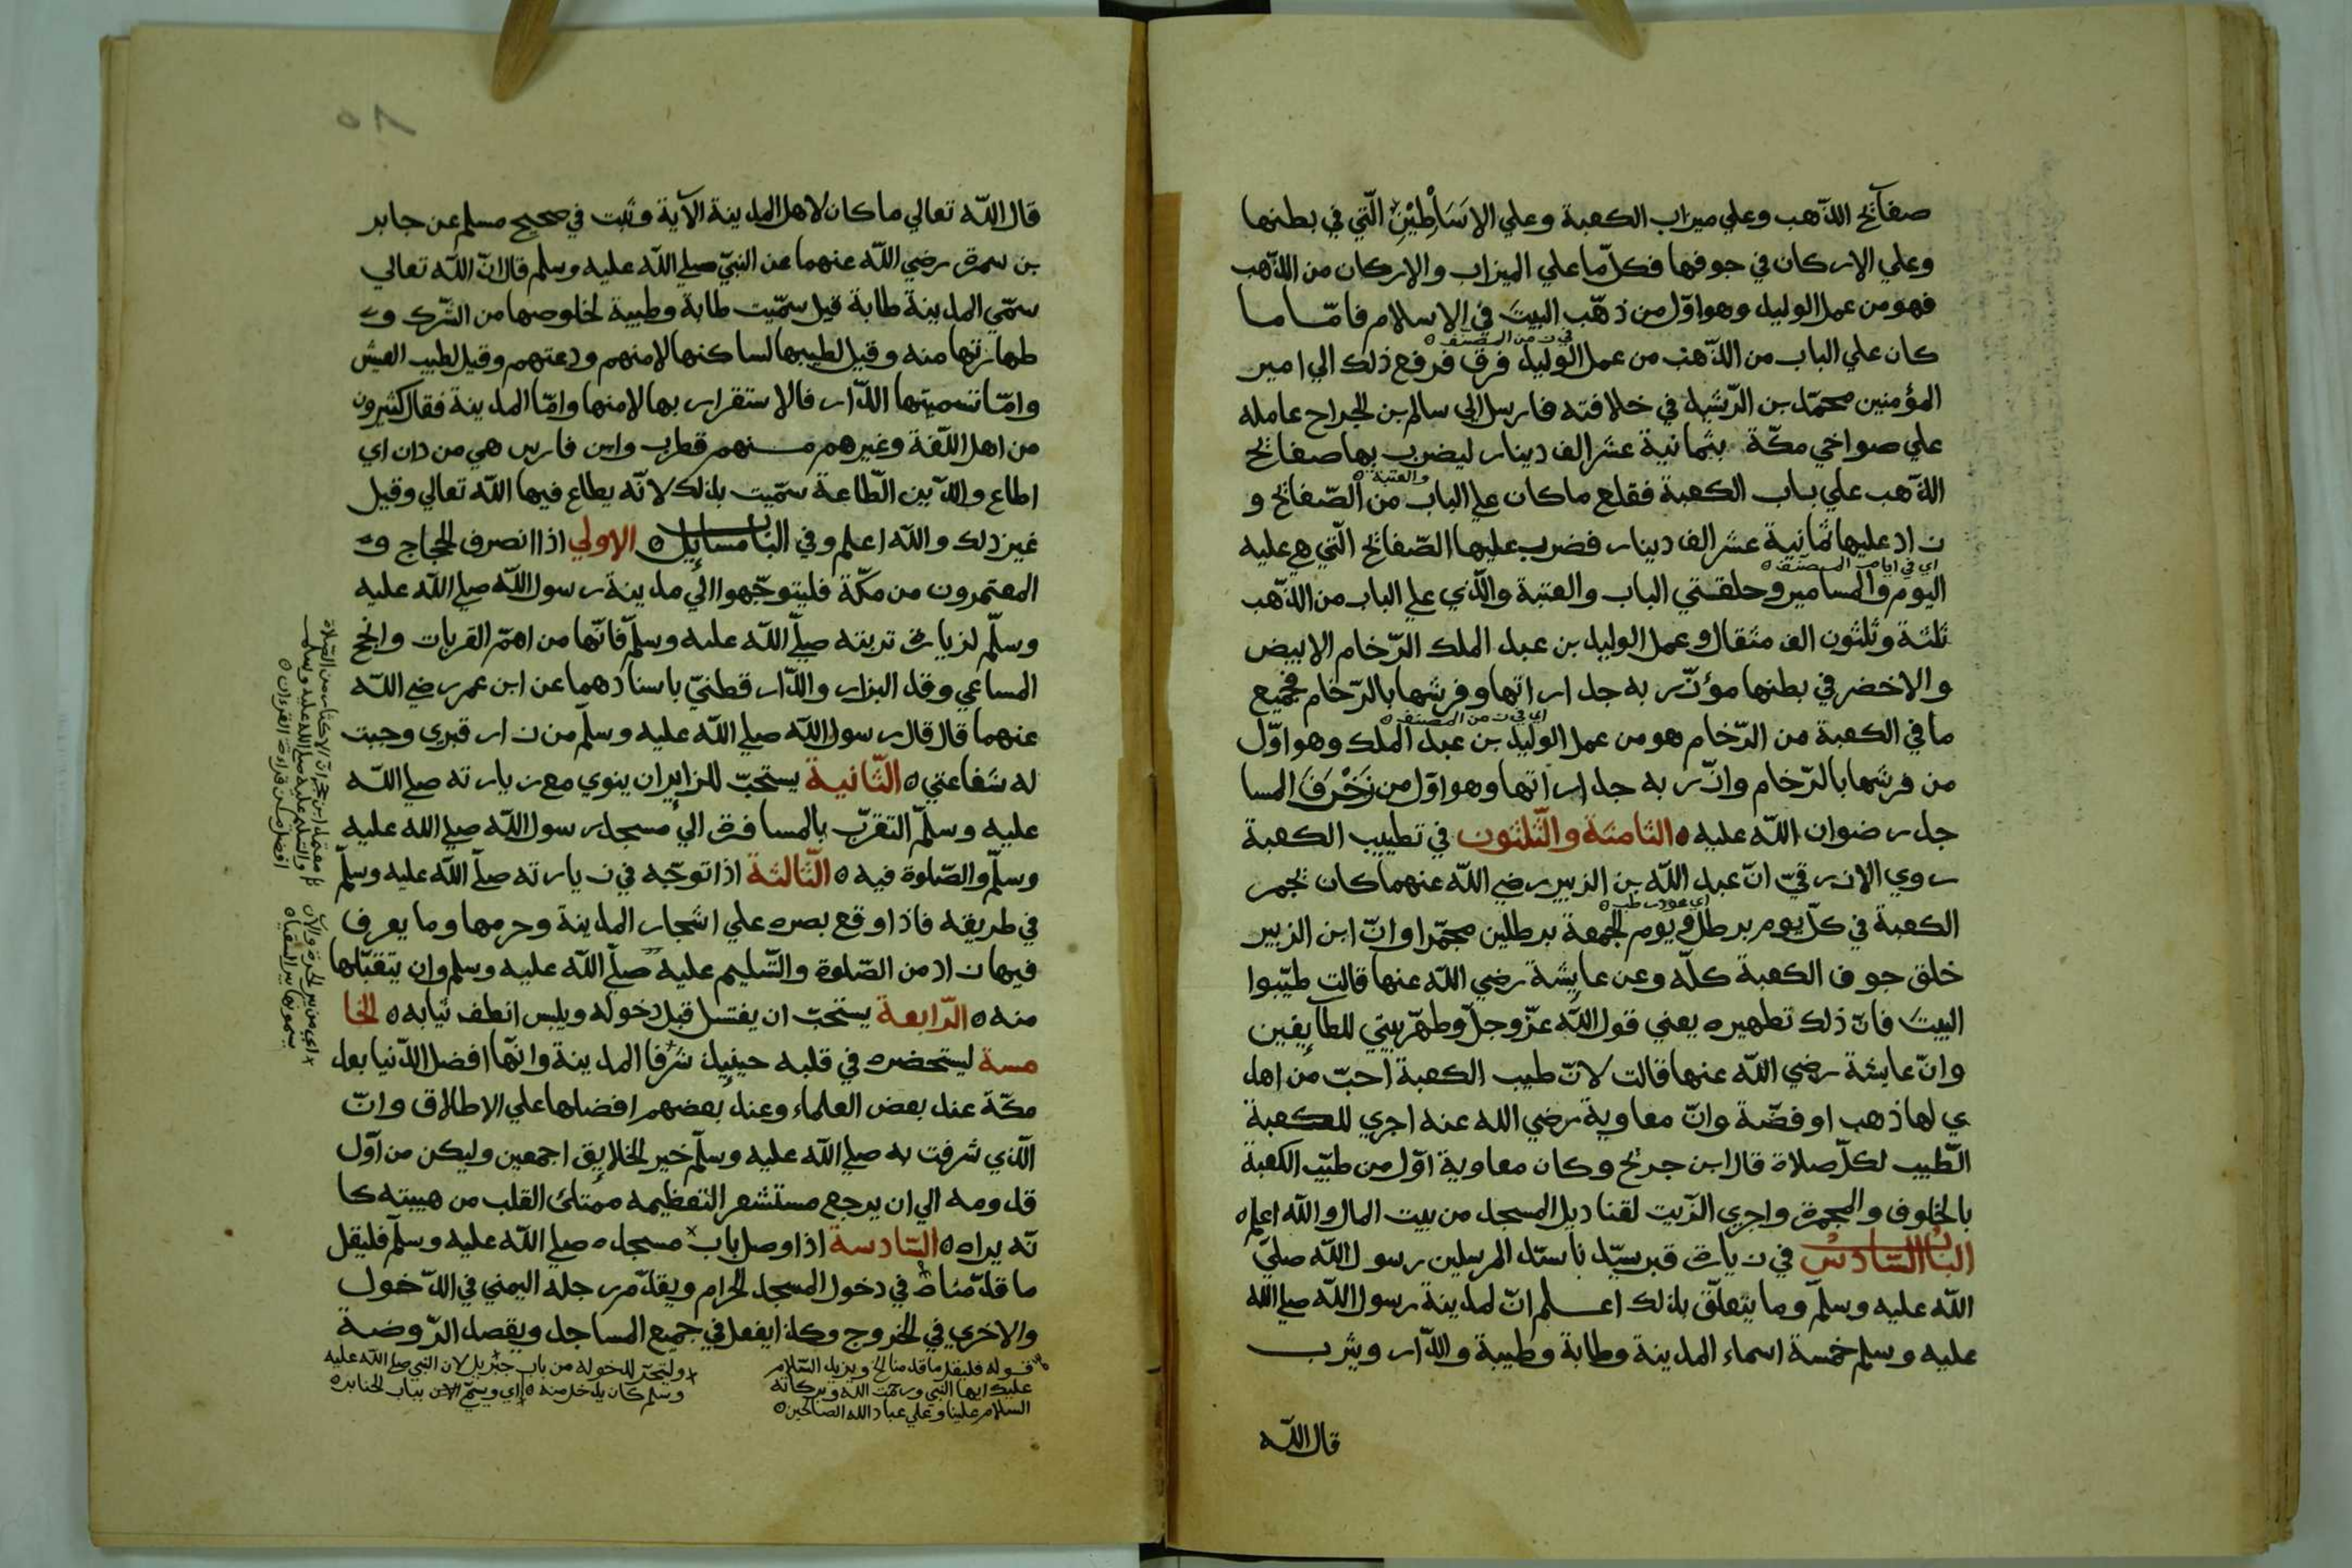 صفآئح الذّهب وعلي ميزاب الكعبة وعلي الاسَاطِيْنِ الّتي في بطنها
وعلي الاركان في جوفها فكلّ ما علي الميزاب والاركان من الذّهب
فهو من عمل الوليد وهو اوّل من ذهّب البيتَ في الاسلام فامّا ما
كان علي الباب من الذّهب من عمل الوليد فرق فرفع ذلك الي امير
المؤمنين محمّد بن الرّشيد في خلافته فارسل الي سالم بن الجراح عامله
علي صواخي مكّة بثمانية عشر الف دينار ليضرب بها صفائح
الذّهب علي باب الكعبة فقلع ما كان علي الباب من الصّفائح و
والعتبة ٥
زاد عليها ثمانية عشر الف دينار فضرب عليها الصّفائح الّتي هي عليه
اي في ايام المصنّف ٥
اليوم والمسامير وحلقتي الباب والعتبة والّذي علي الباب من الذّهب
ثلثة وثلثون الف مثقال وعمل الوليد بن عبد الملك الرّخام الابيض
والاخضر في بطنها مؤزّر به جداراتها وفرشها بالرّخام فجميع
اي في زمن المصنف ٥
ما في الكعبة من الرّخام هو من عمل الوليد بن عبد الملك وهو اوّل
من فرشها بالرّخام وازّر به جداراتها وهو اوّل من زَخْرَفَ المسا
جد رضوان اللّه عليه ٥ الثّامنة والثّلثون في تطييب الكعبة
روي الازرقيّ انّ عبد اللّه بن الزبير رضي اللّه عنهما كان يجمر
اي عود رطب ٥
الكعبة في كلّ يوم برطل ويوم الجمعة برطلين مجمّرا وانّ ابن الزبير
خلق جوف الكعبة كلّه وعن عايشة رضي اللّه عنها قالت طيّبوا
البيتَ فانّ ذلك تطهيره يعني قول اللّه عزّ وجلّ وطهّر بيتي للطايفين
وانّ عايشة رضي اللّه عنها قالت لانّ طيب الكعبة احبّ من اهد
ي لها ذهب او فضّة وانّ معاوية رضي الله عنه اجري للكعبة
الطّيب لكلّ صلاة قال ابن جريج وكان معاوية اوّل من طيّب الكعبة
بالخلوف والمجمرة واجري الزّيت لقناديل المسجد من بيت المال واللّه اعلم ٥
الباب السّادس في زيارة قبر سيّدنا سيّد المرسلين رسول اللّه صليّ
اللّه عليه وسلّم وما يتعلّق بذلك اعلم انّ لمدينة رسول اللّه صلي الله
عليه وسلم خمسة اسماء المدينة وطابة وطيبة والدّار ويثرب
قال اللّه
قال اللّه تعالي ما كان لاهل المدينة الآية وثبت في صحيح مسلم عن جابر
بن سمرة رضي اللّه عنهما عن النبيّ صلي اللّه عليه وسلم قال انّ اللّه تعالي
سمّي المدينة طابة قيل سمّيت طابة وطيبة لخلوصها من الشّرك و
طهارتها منه وقيل لطيبها لساكنها لامنهم ودعتهم وقيل لطيب العيش
وامّا تسميتها الدّار فالاستقرار بها لامنها وامّا المدينة فقال كثيرون
من اهل اللّغة وغيرهم منهم قطرب وابن فارس هي من دان اي
اطاع والدّين الطّاعة سمّيت بذلك لانّه يطاع فيها اللّه تعالي وقيل
غير ذلك واللّه اعلم وفي الباب مسايل ٥ الاولي اذا انصرف الحجاج و
المعتمرون من مكّة فليتوجّهوا الي مدينة رسول اللّه صلي اللّه عليه
وسلّم لزيارة تربته صلّي اللّه عليه وسلّم فانّها من اهمّ القربات وانجح
المساعي وقد البزار والدّارقطنيّ باسنادهما عن ابن عمر رضي اللّه
عنهما قال قال رسول اللّه صلي اللّه عليه وسلّم من زار قبري وجبت
له شفاعتي ٥ الثّانية يستحبّ للزايران ينوي مع زيارته صلي اللّه
عليه وسلّم التقرّب بالمسافرة الي مسجد رسول اللّه صلي الله عليه
وسلّم والصّلوة فيه ٥ الثّالثة اذا توجّه في زيارته صلّي اللّه عليه وسلّم
في طريقه فاذا وقع بصره علي اشجار المدينة وحرمها وما يعرف
فيها زاد من الصّلوة والتّسليم عليه صلّي اللّه عليه وسلم وان يتقبّلها
منه ٥ الرّابعة يستحبّ ان يغتسل قبل دخوله ويلبس انظف ثيابه ٥ الخا
مسة ليستحضره في قلبه حينيذ شرفا المدينة وانّها افضل الدّنيا بعد
مكّة عند بعض العلماء وعند بعضهم افضلها علي الاطلاق وانّ
الّذي شرفت به صلي اللّه عليه وسلّم خير الخلايق اجمعين وليكن من اوّل
قدومه الي ان يرجع مستشعر التعظيمه ممتلئ القلب من هيبته كا
نّه يراه ٥ السّادسة اذا وصل باب مسجده صلي اللّه عليه وسلّم فليقل
ما قدّمناه في دخول المسجد الحرام ويقدّم رجله اليمني في الدّخول
والاخري في الخروج وكذا يفعل في جميع المساجد ويقصد الرّوضة
قوله فليقل ما قدمنا الخ ويزيد السّلام
عليك ايها النّبي ورحمت الله وبركاته
السلام علينا وعلي عباد الله الصالحين ٥
وليتحرّ لدخوله من باب جبريل لان النبي صلي اللّه عليه
وسلم كان يدخل منه ٥ اي وسمّي الان بباب الجنايز ٥